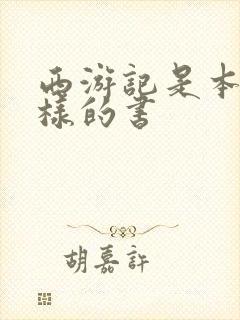 西游記是本
樣的書
胡嘉許